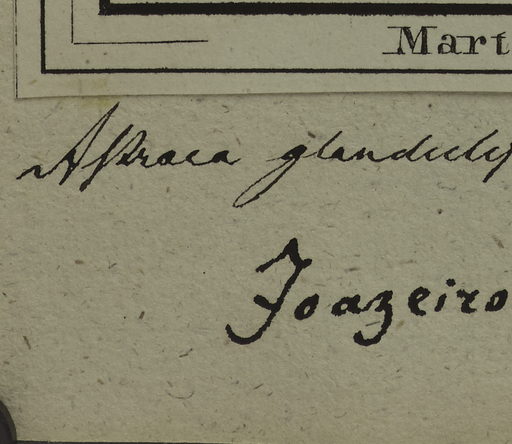 Mart
Astraea glandulif
Joazeiro